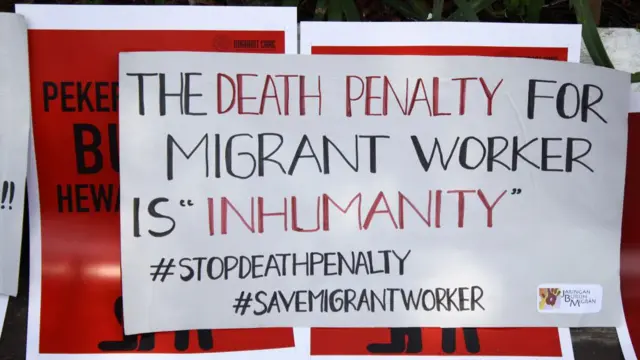 THE DEATH PENALTY FOR
MIGRANT WORKER
IS "INHUMANITY"
#STOPDEATHPENALTY
#SAVEMIGRANTWORKER
JARINGAN
BURUH
MIGRAN
!!